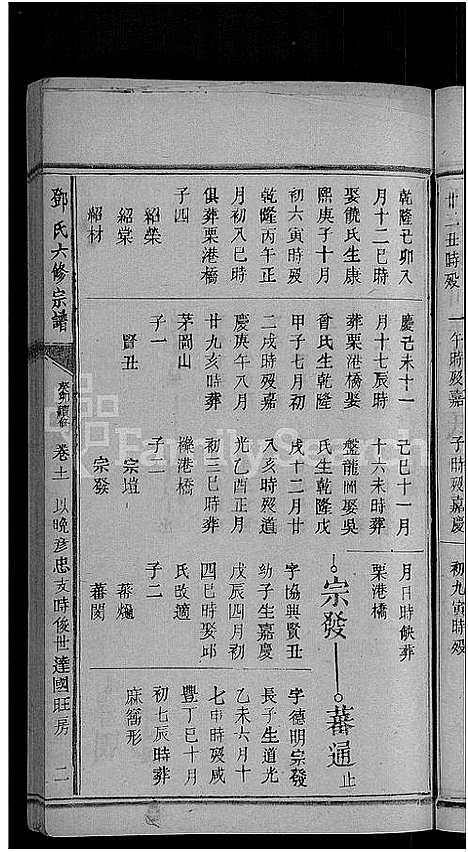 廿二丑時殁
午時殁嘉
子時殁嘉慶
初九寅時殁
乾隆己卯八
月十二巳時
娶饒氏生康
熙庚子十月
初六寅時殁
乾隆丙午正
月初八巳時
俱葬栗港橋
子四
紹榮
紹棠
紹材
慶己未十一
月十七辰時
葬栗港橋娶
曾氏生乾隆
甲子七月初
二戌時殁嘉
慶庚午八月
廿九亥時葬
茅岡山
子一
賢丑
己巳十一月
十六未時葬
盤龍岡娶吳
氏生乾隆戊
戌十二月廿
八亥時殁道
光乙酉正月
初三巳時葬
櫟港橋
子二
宗塏
宗發
月日時缺葬
栗港橋
宗發
字協興賢丑
幼子生嘉慶
戊辰四月初
四巳時娶邱
氏改適
子二
蕃
蕃閔
蕃通止
字德明宗發
長子生道光
乙未六月十
七申時殁咸
豐丁巳十月
初七辰時葬
麻形
鄧氏六修宗譜
卷十一
以晚彥忠支時俊世達國旺房
二
FamilySearch